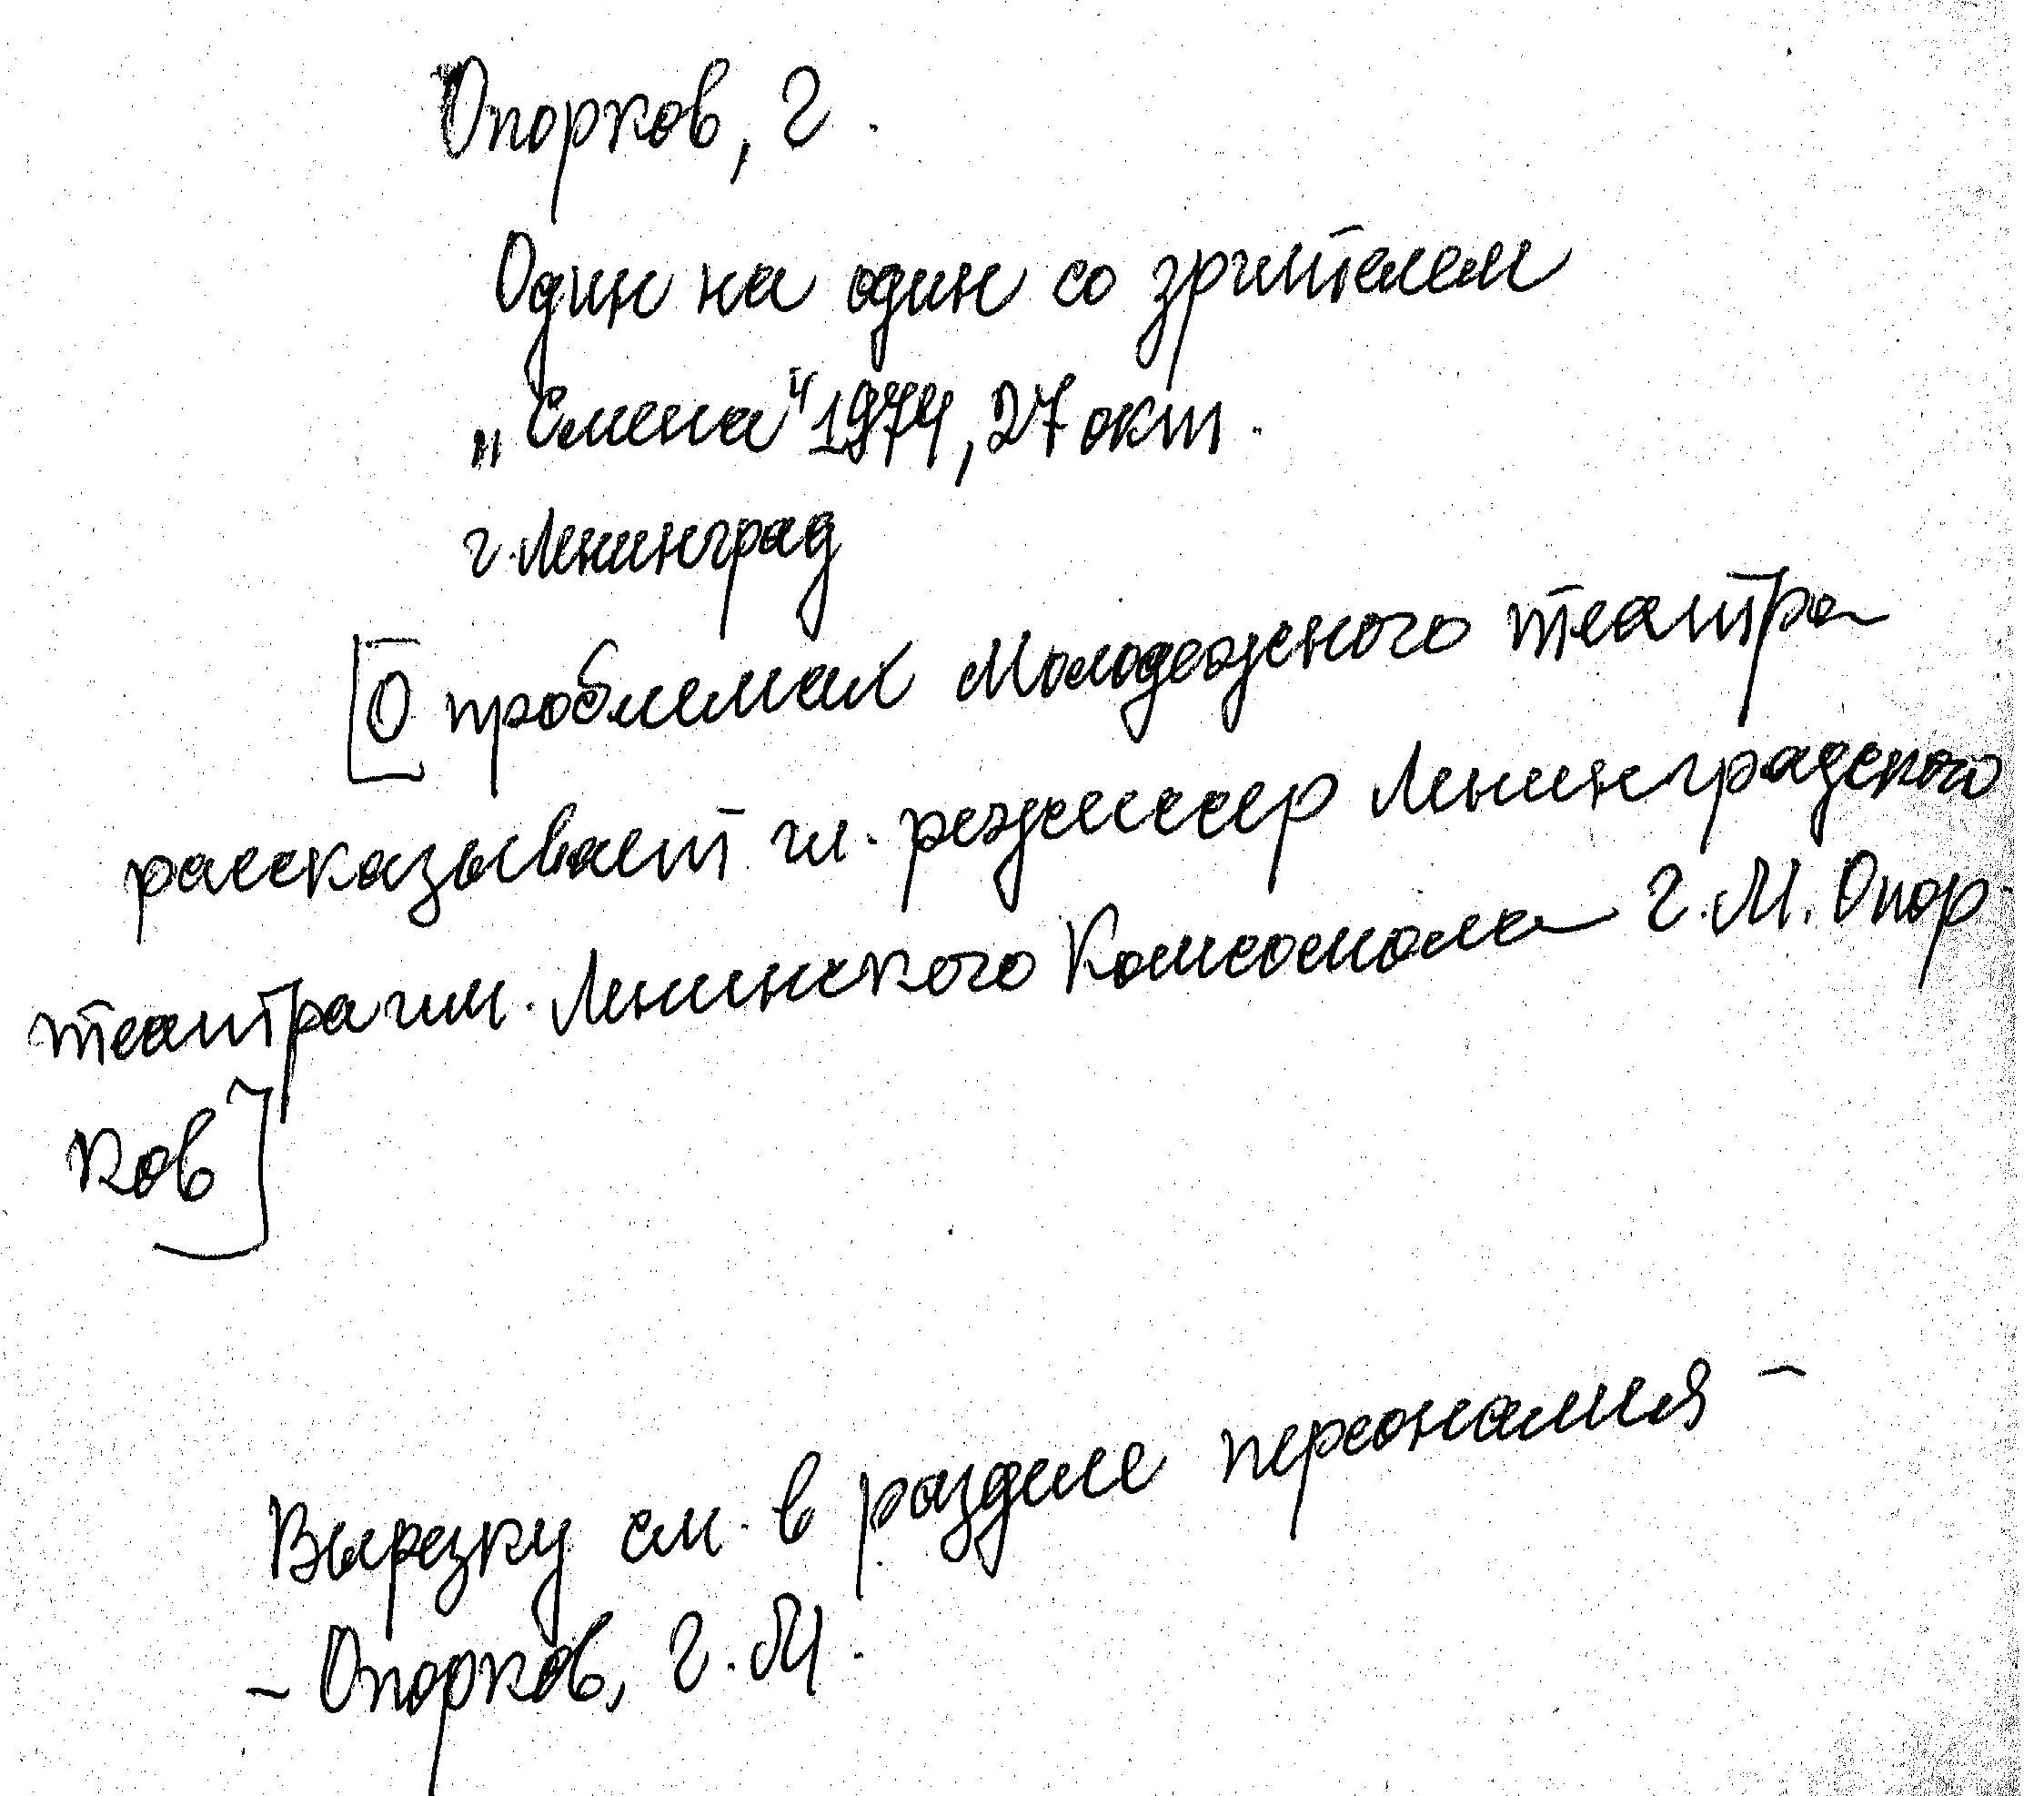 Опорков, Г.
Один на один со зрителем
„Смена“ 1974, 27 окт.
г. Ленинград
[О проблемах молодежного театра
рассказывает гл. режиссер Ленинградского
театра им. Ленинского Комсомола Г. М. Опор-
ков]
Вырезку см. в разделе персоналия –
– Опорков, Г. М.